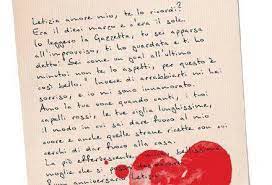 Letizia amore mio, te lo ricordi?
Era il dieci marzo e c'era il sole.
Io leggevo la Gazzetta, tu sei apparsa
all'improvviso, ti ho guardata e ti ho
detto: Sei come un goal all'ultimo
minuto: non te lo aspetti, per questo è
così bello! Invece di arrabbiarti mi hai
sorriso, e io mi sono innamorato.
Amo la tua voce quando canti, i tuoi
capelli rossi, le tue ciglia lunghissime,
il modo in cui sai dare fuoco al mio
cuore e anche quelle strane ricette con cui
cerchi di dar fuoco alla casa
La più effervescente bellissima
moglie che si
buon anniversario Letizia